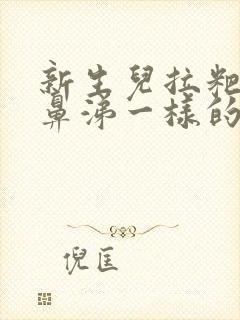 新生兒拉粑
鼻涕一樣的
倪匡